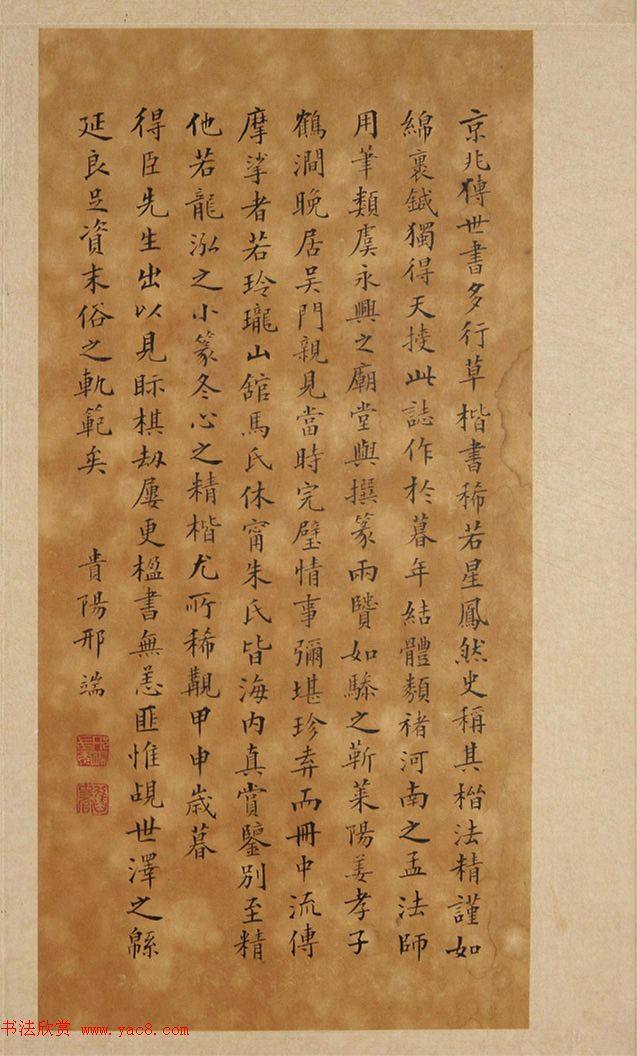 京兆傳世書多行草楷書稀若星鳳然史稱其楷法精謹如
綿裏鍼獨得天授此誌作於暮年結體類褚河南之孟法師
用筆類虞永興之廟堂與撰篆兩賢如驂之靳萊陽姜孝子
鶴澗晚居吳門親見當時完璧情事彌堪珍弆而冊中流傳
摩挲者若玲瓏山館馬氏休甯朱氏皆海內真賞鑒別至精
他若龍泓之小篆冬心之精楷尤所稀覯甲申歲暮
得臣先生出以見眎棋劫屢更楹書無恙匪惟覘世澤之緜
延良足資末俗之軌範矣 貴陽邢端
书法欣赏 www.yac8.com